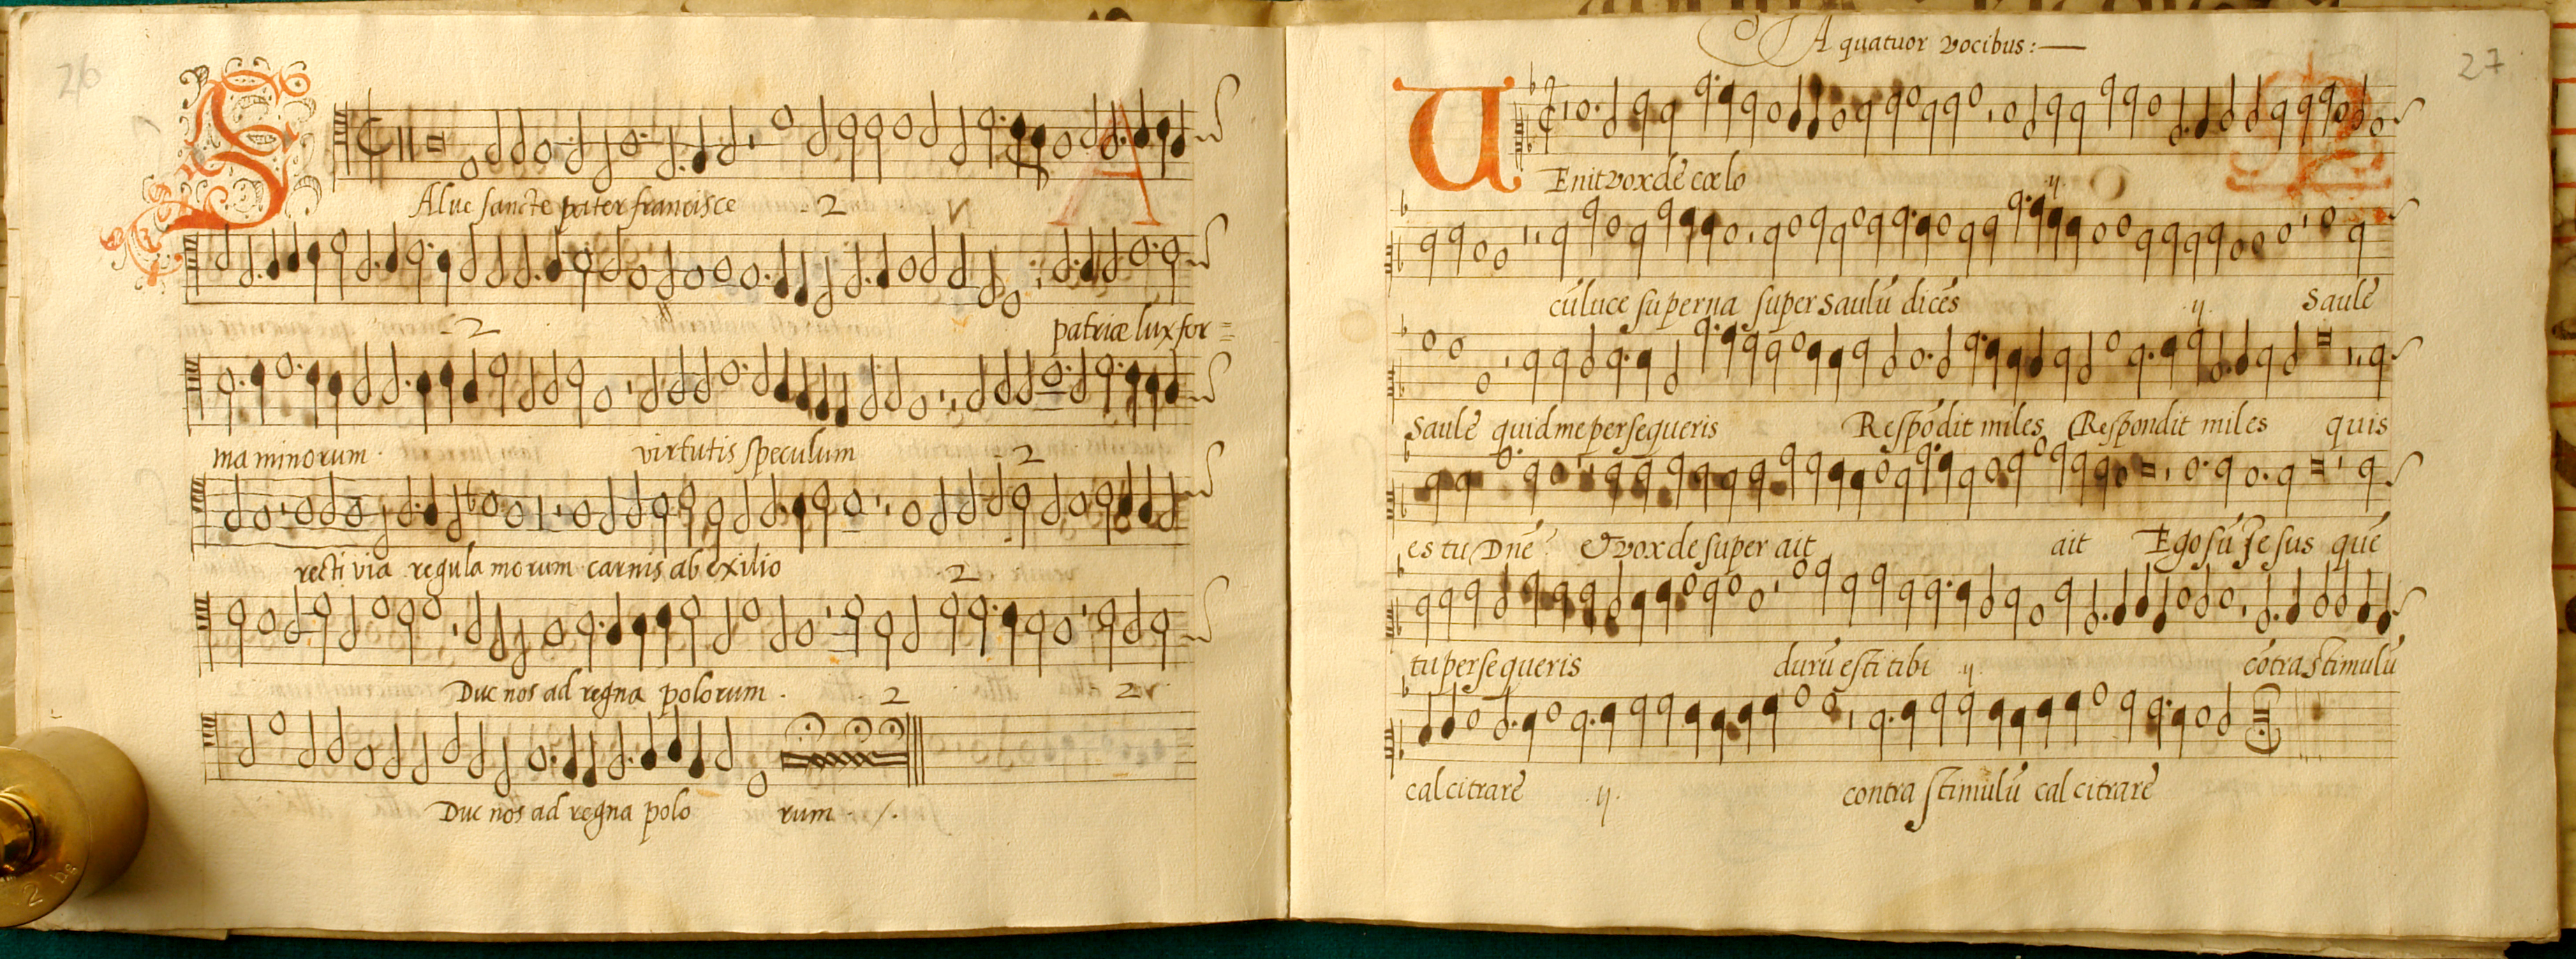 26
Salue sancte pater francisce 2
2 patriæ lux for=
ma minorum . virtutis speculum 2
recti via regula morum carnis ab exilio 2
Duc nos ad regna polorum . 2 2
Duc nos ad regna polo rum
27
A quatuor vocibus :—
VEnit vox de cœlo ij
cũ luce superna super saulũ dicẽs ij. Saulẽ
Saulẽ quid me persequeris Respõdit miles Respondit miles quis
es tu Dnẽ? & vox de super ait ait Ego sũ Jesus quẽ
tu persequeris durũ est tibi ij cõtra stimulũ
calcitrarẽ .ij. contra stimulũ calcitrarẽ
2 hg